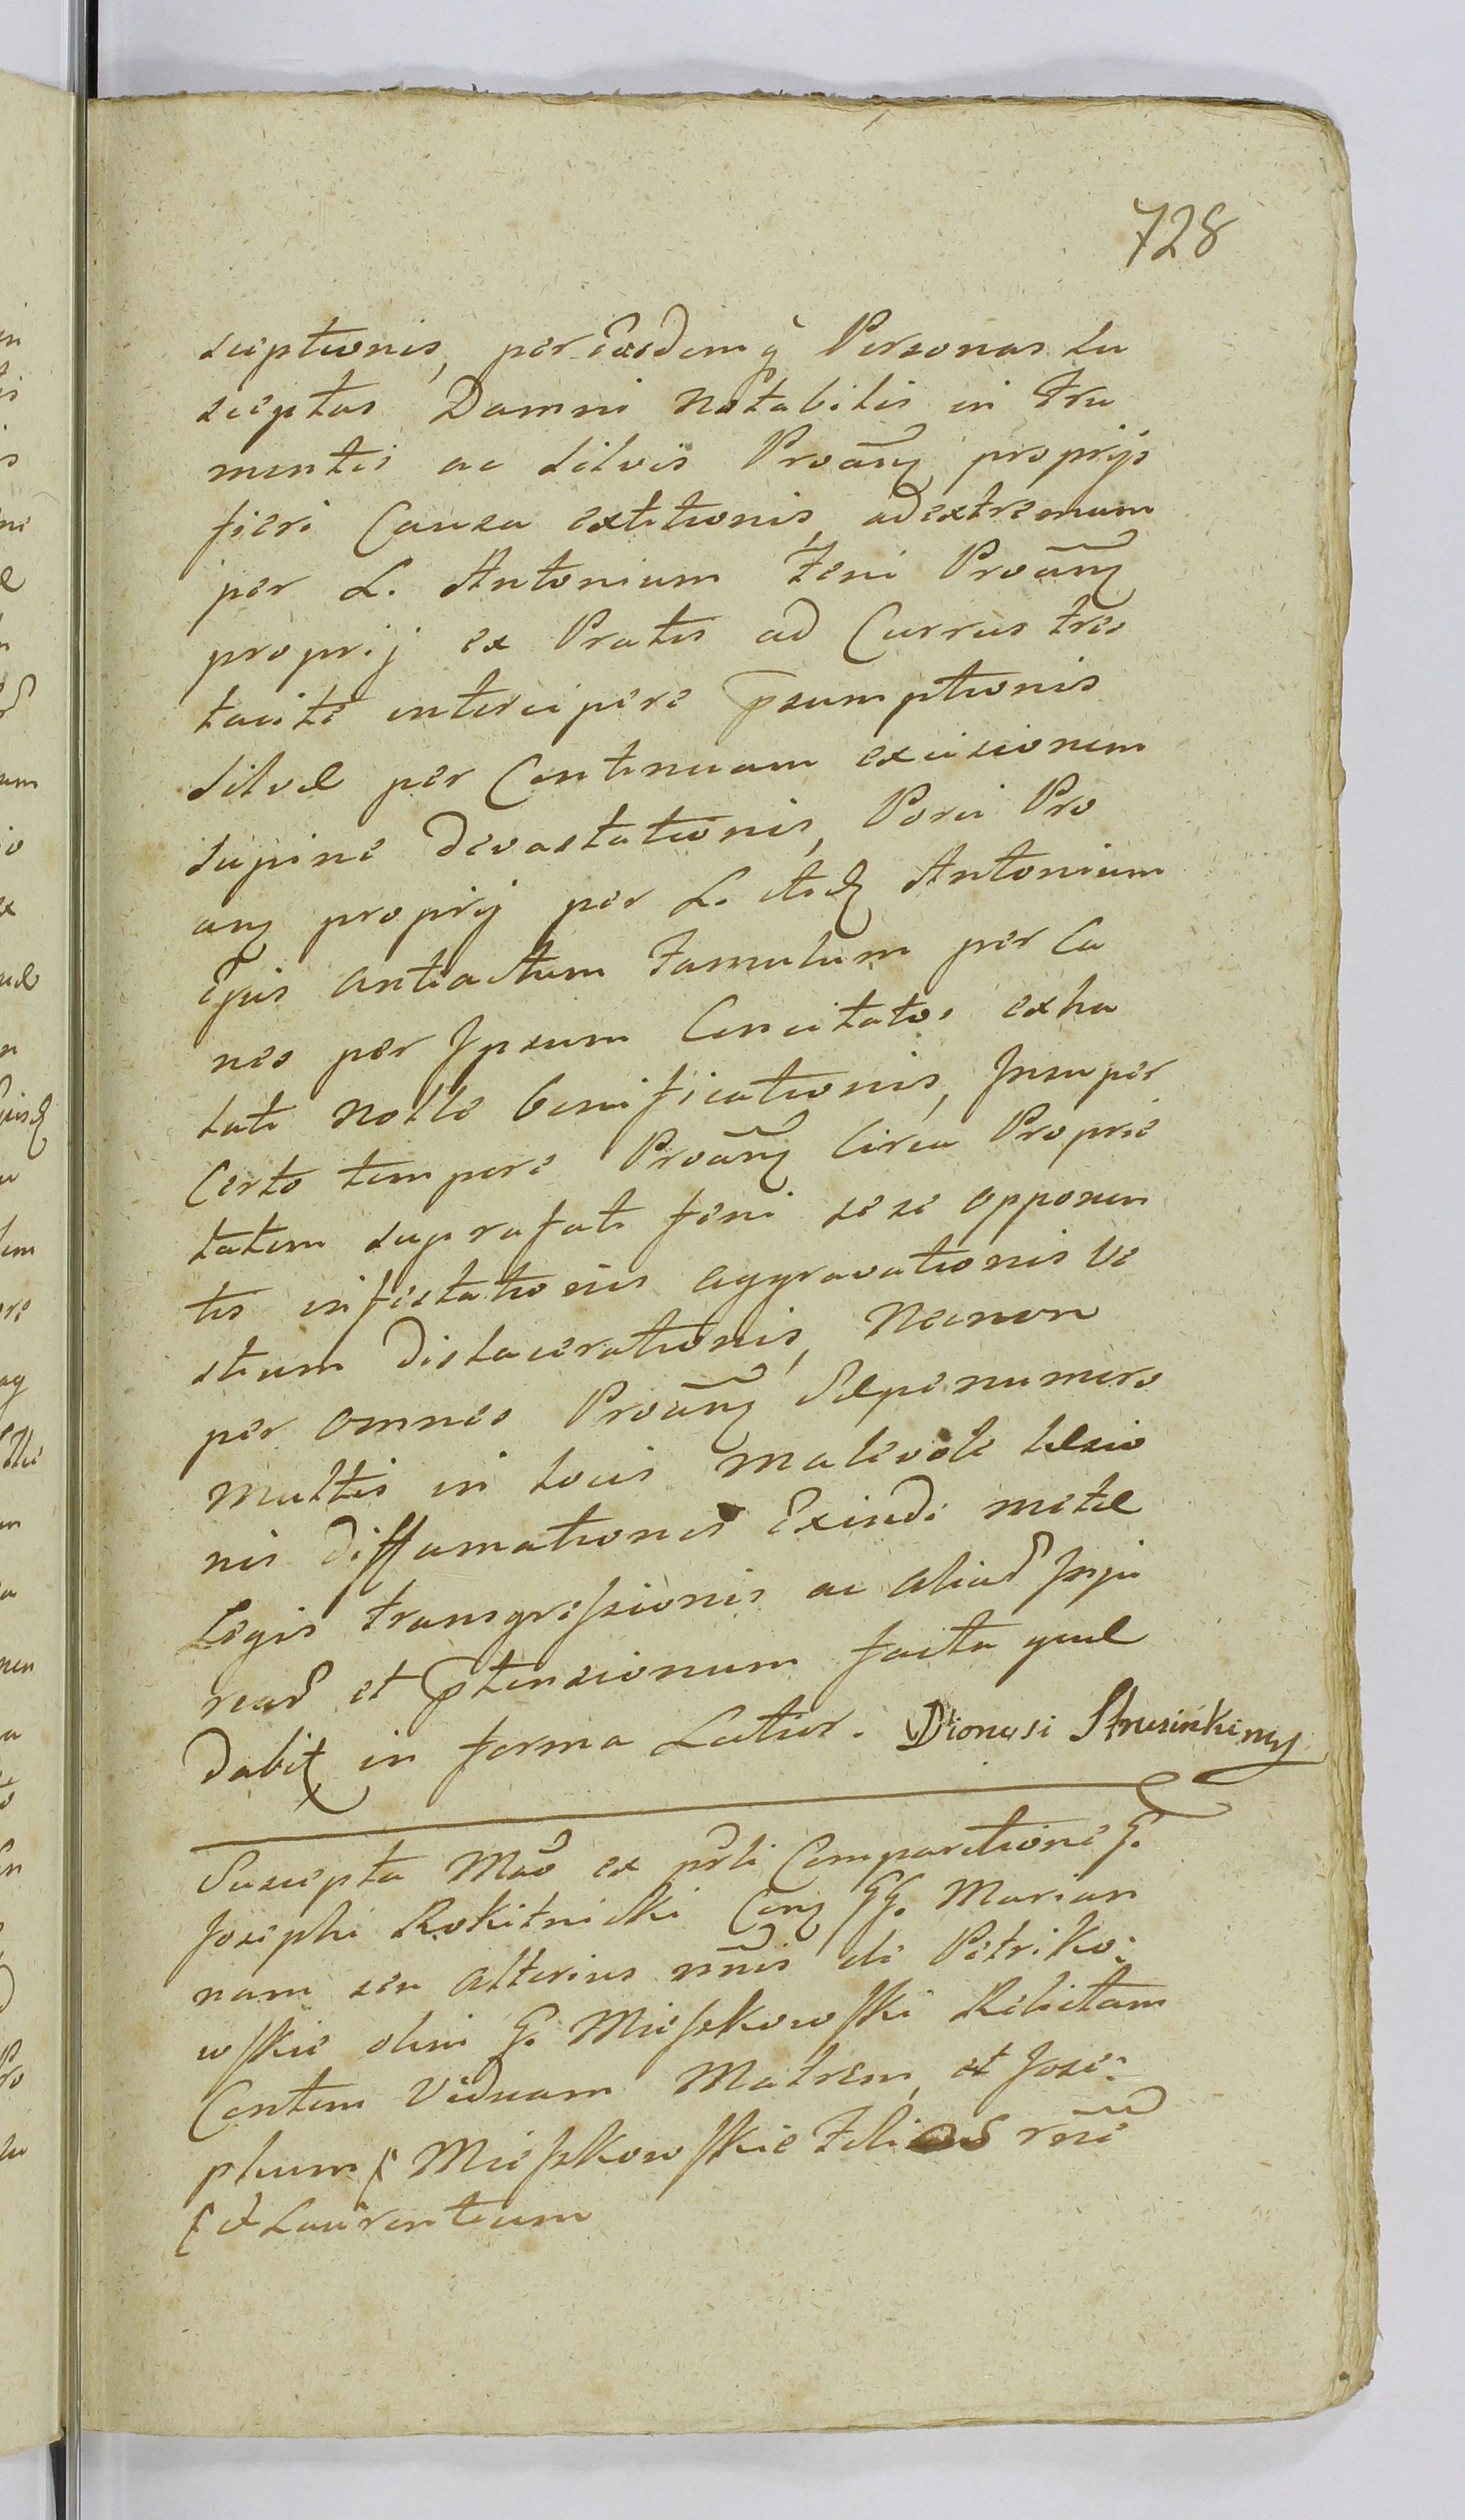 728
sceptionis, per Easdemq̃ Personas su
sceptas Damni notabilis in Fru
mentis ac silvis Proãn proprijs
fieri Causa extitionis, ad extremum
per L. Antonium Feni Proãn
proprij ex Pratis ad Currus tres
tacite intercipere psumptionis
silvæ per Continuam excisionem
supine Devastationis, Porci Pro
an proprij per L. Antonium
Ejus antiactum Famulum per Ca
nes per Ipsum Concitatos exha
lati nolle bonificationis, Insuper
Certo tempore Proãn Circa Proprie
tatem suprafati feni sese opponen
tis infestationis aggravationis Ve
stium Dislacerationis, Necnon
per omnes Proãn Sæpenumero
multis in locis malevole læsio
nis Diffamationis Exinde metæ
Legis transgressionis ac aliar Inju
riar et Ptensionum facta quæ
Dabit in forma Latior. Dionisi Strusiński mp
Suscepta Mão ex prli Comparitione G.
Josephi Rokitnicki Con GG. Marian
nam seu alterius nñis de Petriko:
wskie olim G. Mieszkowski Relictam
Contem Viduam Matrem, et Jose:
phum Mieszkowskie Filios rñe
et Laurentium